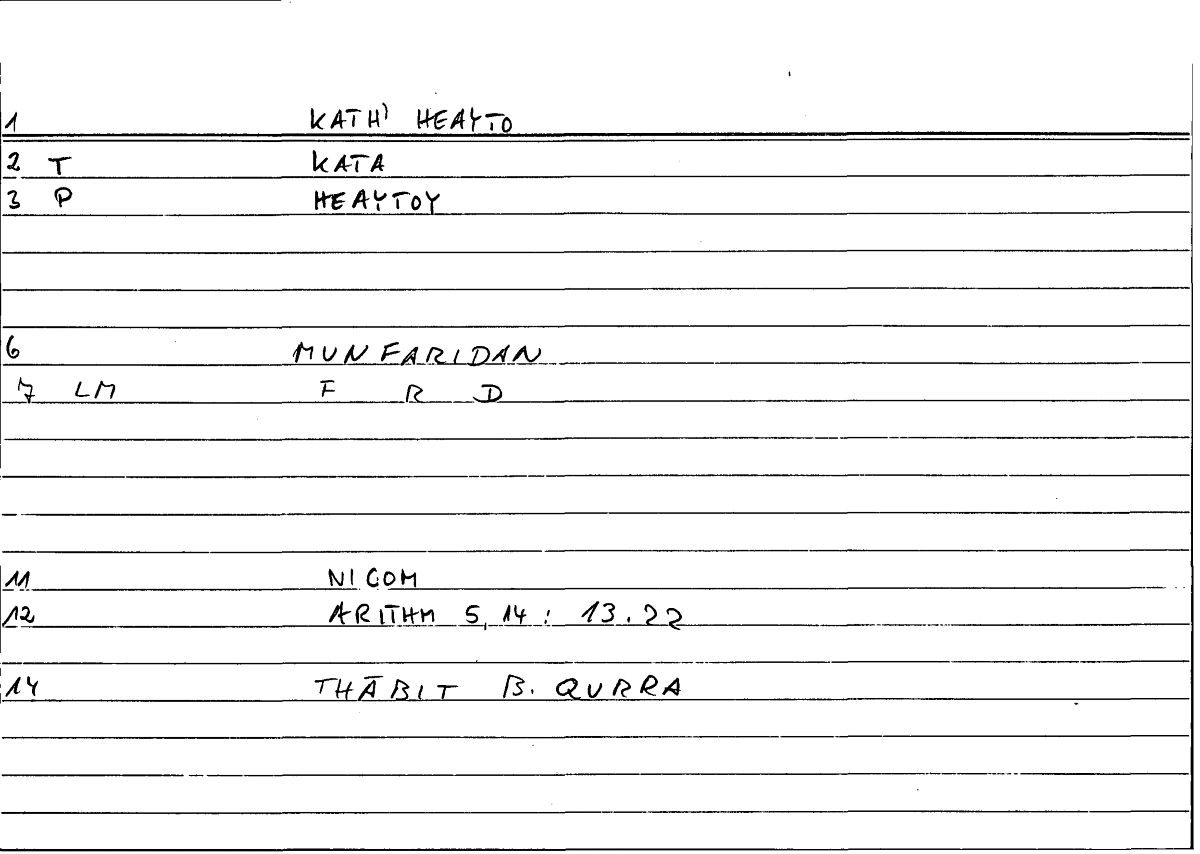 1 KATH' HEAYTO
2 T KATA
3 P HEAYTOY
6 MUNFARIDAN
7 LM F R D
11 NICOM
12 ARITHM 5,14 : 13.22
14 THĀBIT B. QURRA